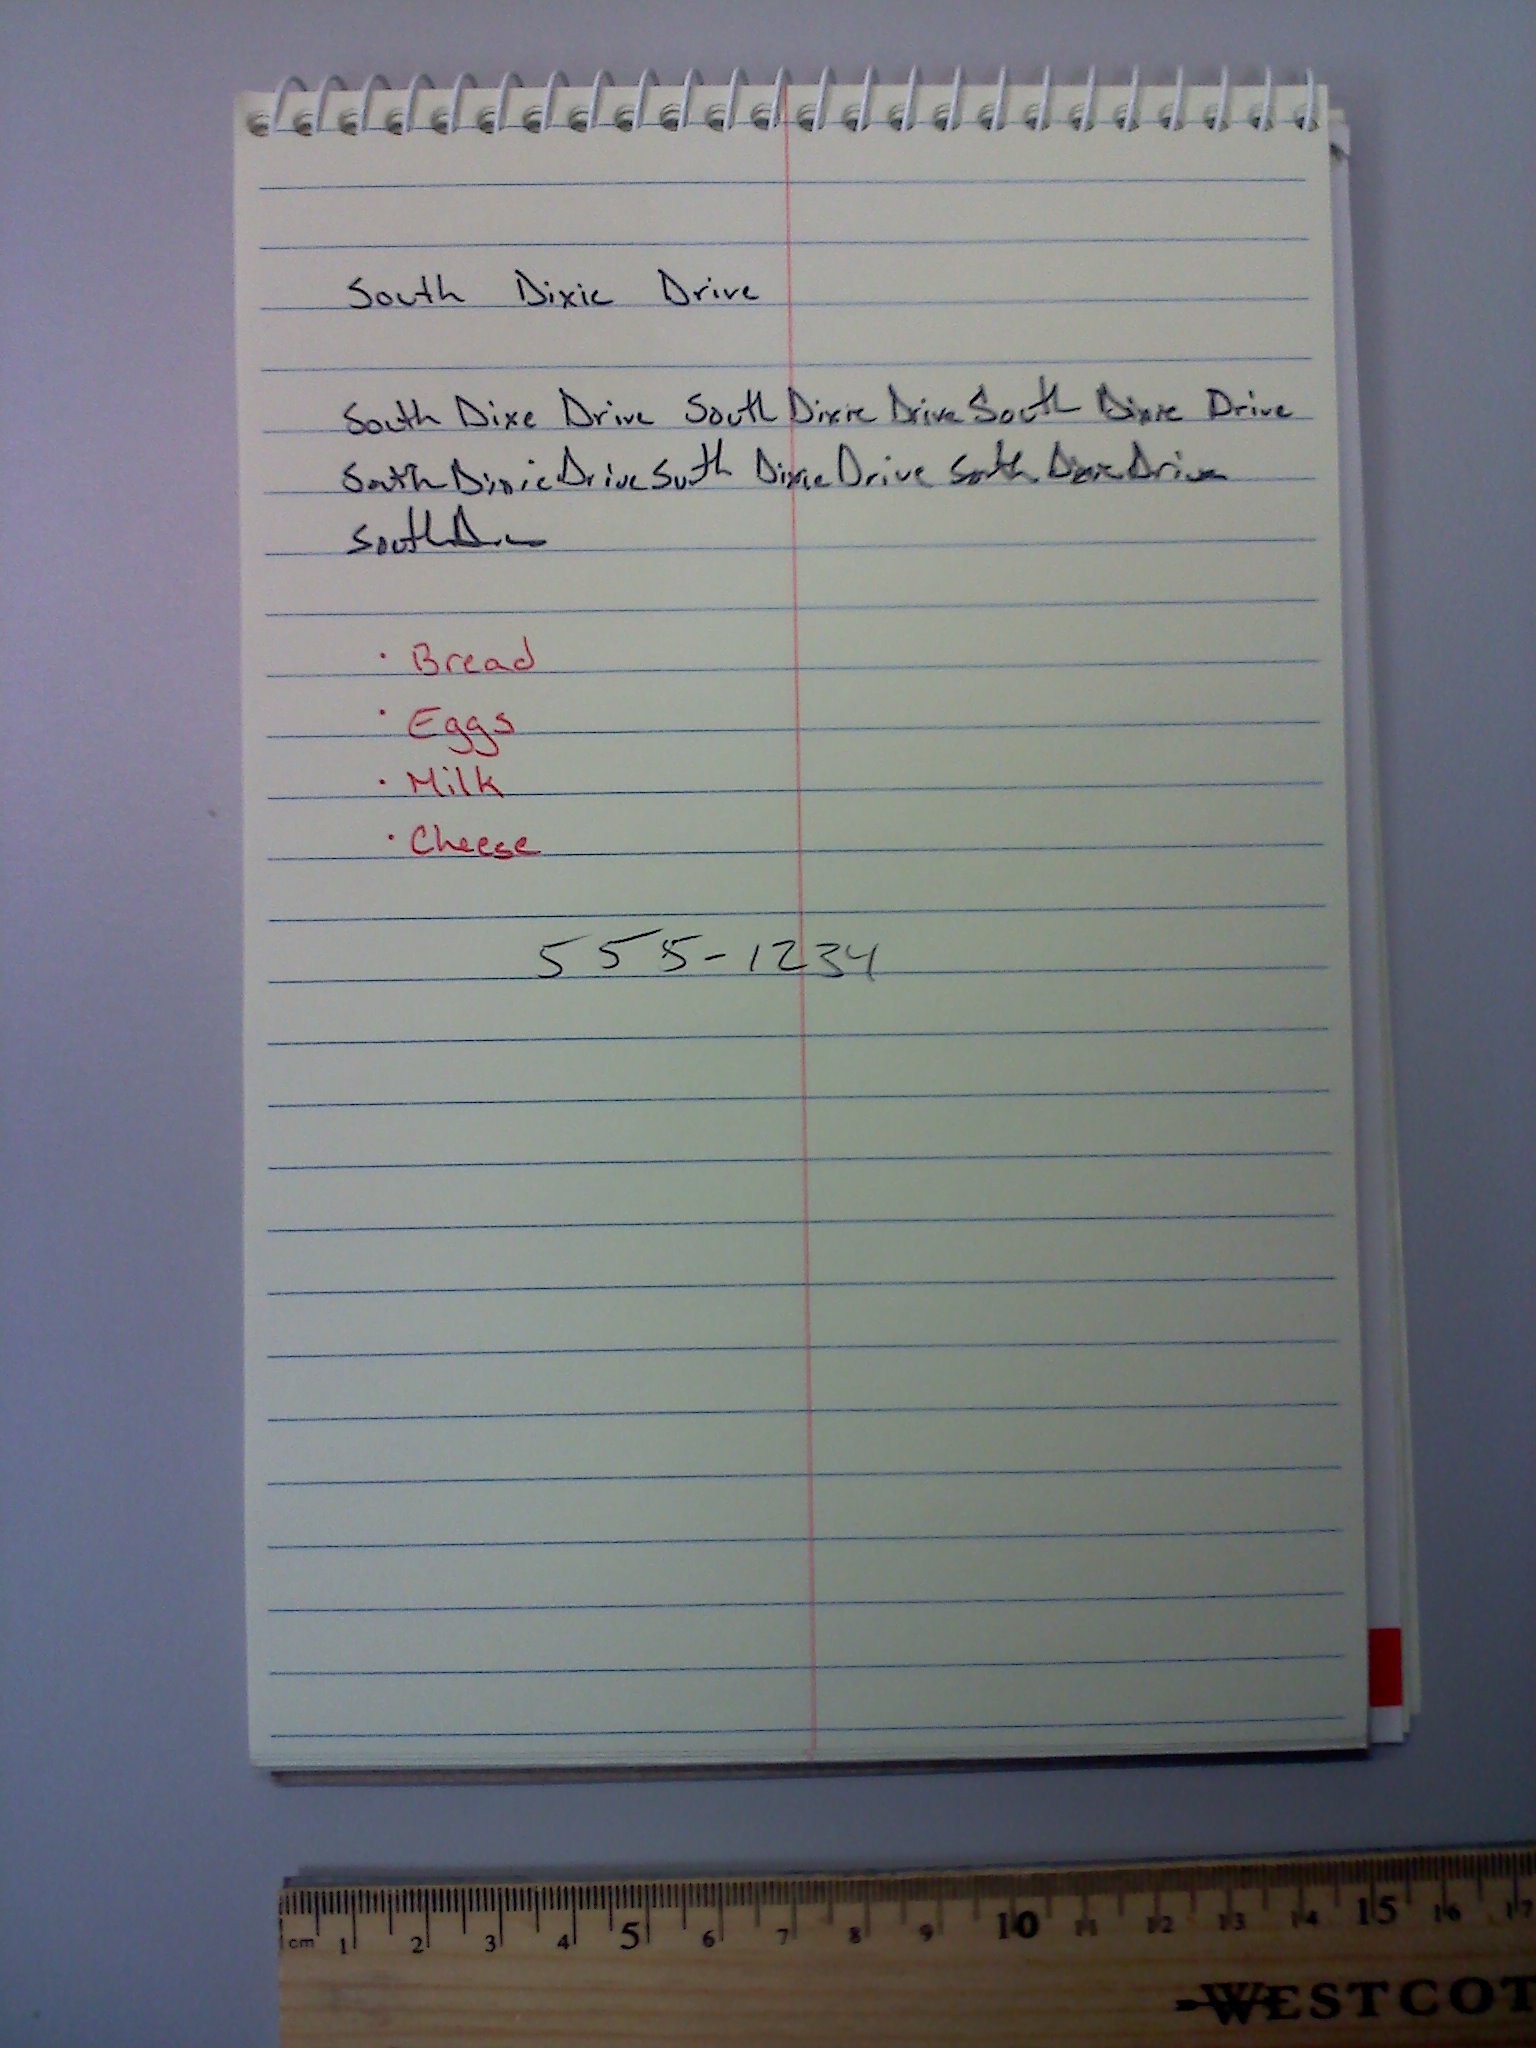 South Dixie Drive
South Dixe Drive South Dixie Drive South Dixie Drive
South Dixie Drive Suth Dixie Drive South Dixie Drive
South
• Bread
• Eggs
• Milk
• Cheese
555-1234
cm 1 2 3 4 5 6 7 8 9 10 11 12 13 14 15 16 17
WESTCOT